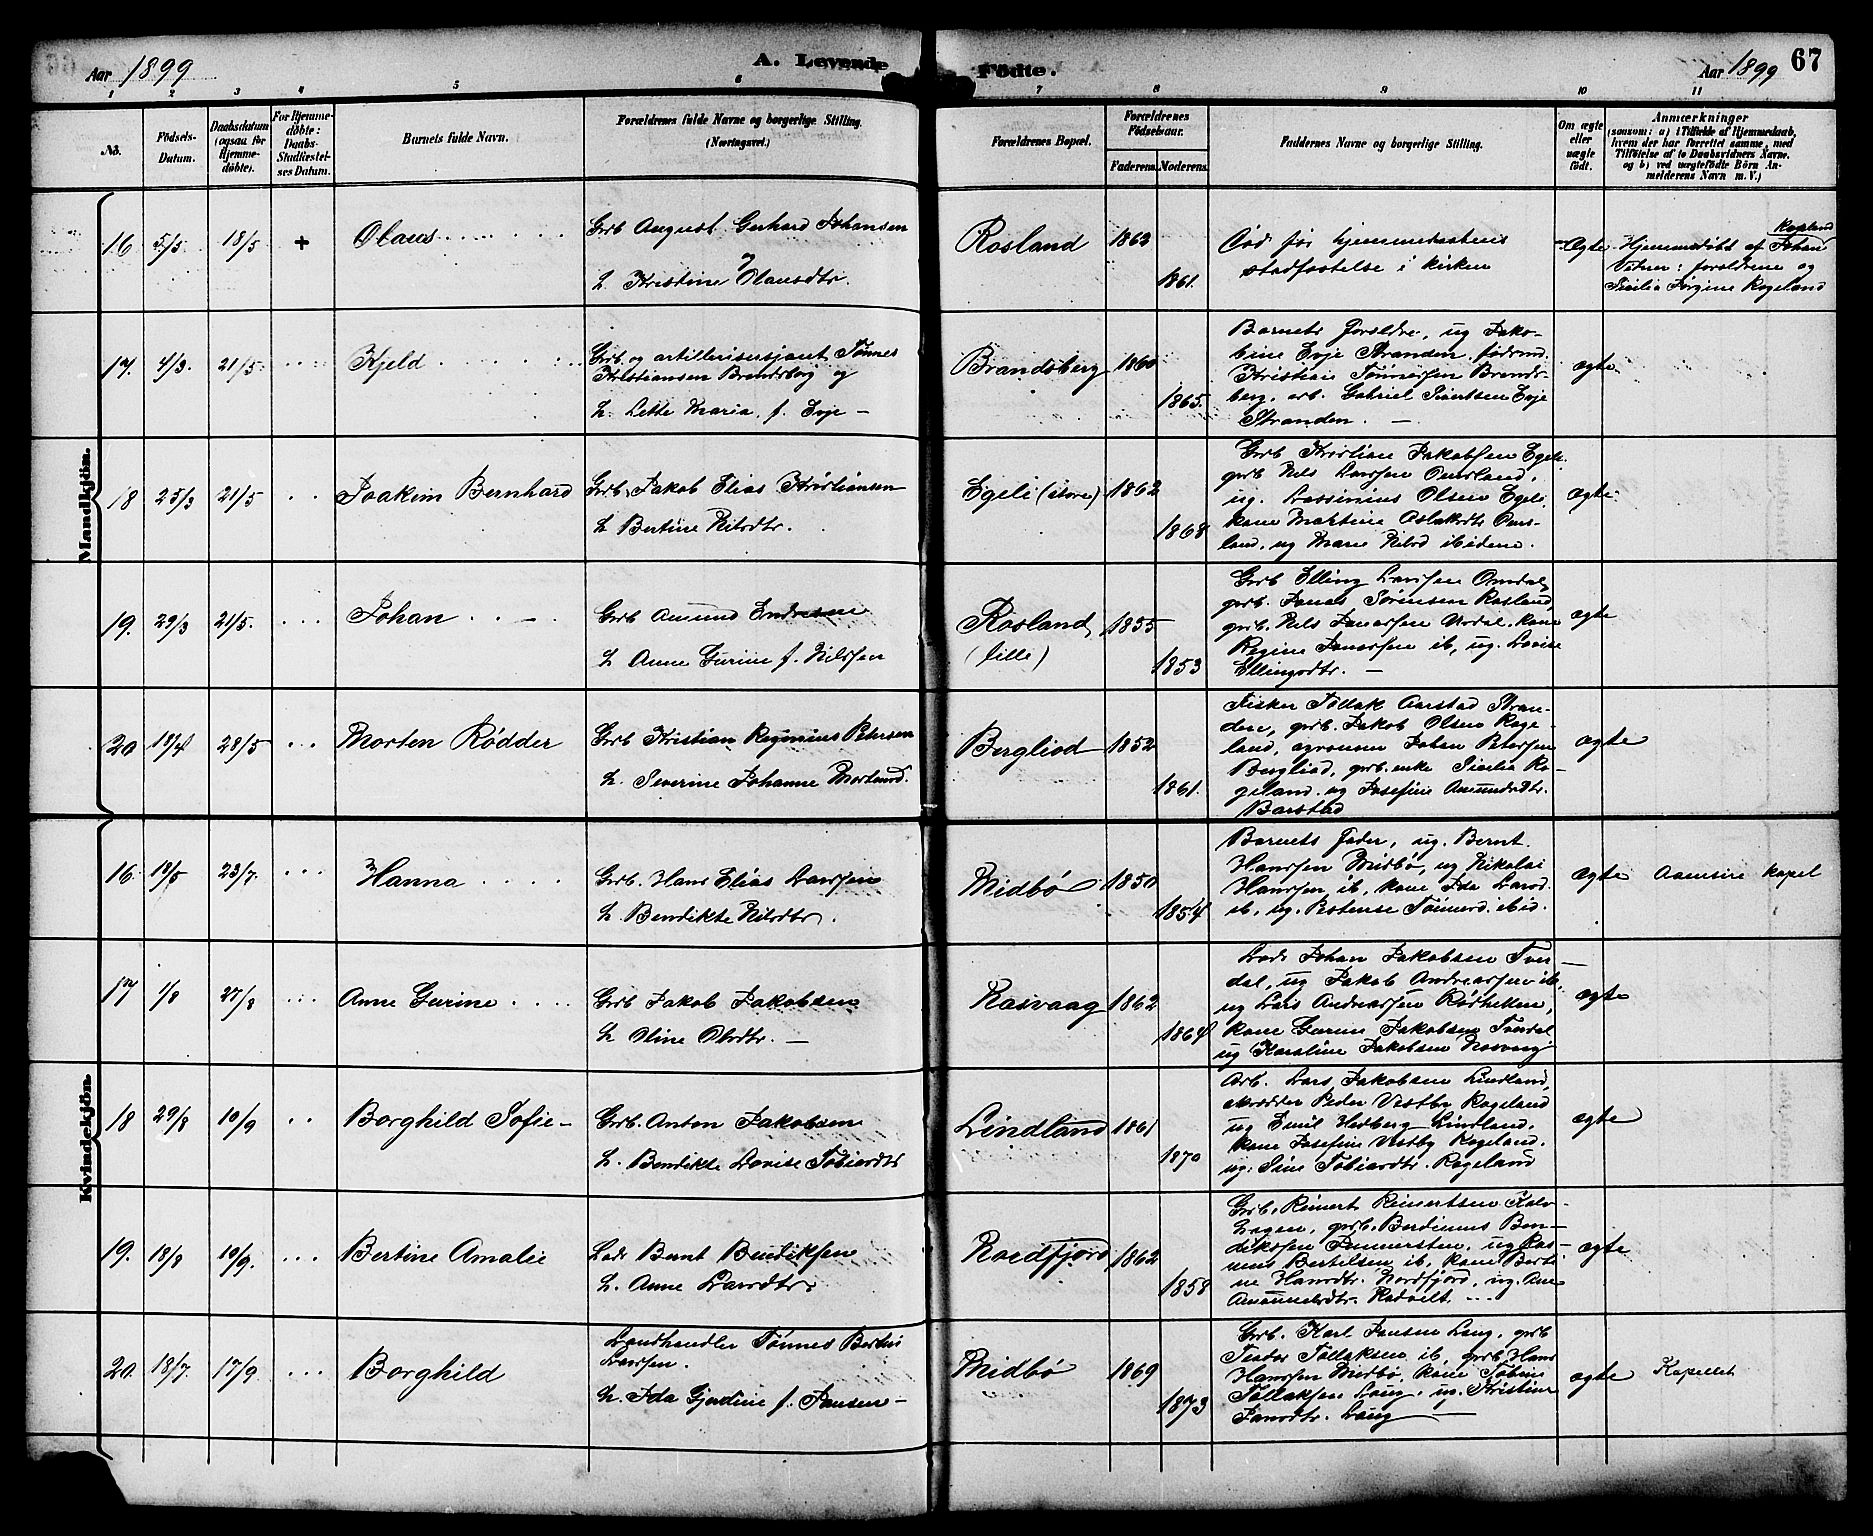 Aar 1899
A. Levende Födte.
Aar 1899
67
1 2 3 4 5 6 7 8 9 10 11
No.
Födsels-Datum.
Daabsdatum (ogsaa for Hjemme-døbte).
For Hjemme-døbte: Daabs-Stadfæstel-ses Datum.
Barnets fulde Navn.
Forældrenes fulde Navne og borgerlige Stilling. (Næringsvei.)
Forældrenes Bopæl.
Forældrenes Födselsaar.
Faderens. Moderens.
Faddernes Navne og borgerlige Stilling.
Om ægte eller uægte født.
Anmærkninger
(saasom: a) i Tilfælde af Hjemmedaab, hvem der har forrettet samme, med Tilføielse af to Daabsvidners Navne, og b) ved uægtefødte Börn An-melderens Navn m. V.)
Mandkjön.
16 5/5 18/5 + Olaus
Grb August Gerhard Johansen
H Kristine Olausdtr.
Rosland 1862
1861.
Død før hjemmedaabens
stadfæstelse i kirken
Ægte
Rageland
Hjemmedøbt af Johan
Vidner: forældrene og
Sicilia Jørgine Rageland
17. 4/3. 21/5. Kjeld
Grb og artillerisersjant Tønnes
Kristiansen Brandsberg og
H. Lette Maria f. Evje –
Brandsberg 1860
1865.
Barnets forældre, ug Jako-
bine Evje Stranden, fødrnd.
Kristian Tønnessen Brands-
berg, arb. Gabriel Sivertsen Evje
Stranden. –
ægte.
18 25/3 21/5 Joakim Bernhard
Grb. Jakob Elias Kristiansen
H Bertine Nilsdtr.
Egeli (store) 1862
1868
Grb Kristian Jakobsen Egeli.
grb Nils Larsen
ug. Olsen Egeli,
kone Martine Aslaksdtr
land, ug Marie Nilsd ibidem.
ægte.
19. 29/3 21/5. Johan
Grb Amund Endresen
H Anne Gurine f. Nilssen
Rosland (lille) 1855
1853
Grb Elling Larssen Omdal,
grb. Jonas Sørensen Rosland,
grb. Nels Jonassen kone
Regine Jonassen ib, ug. Lovise
Ellingsdtr. –
ægte
20 10/4 28/5 Morten Rødder
Grb Kristian Reginius Petersen
H. Severine Johanne Mortensd.
Bergliod 1852
1861.
Fisker Tollak Aarstad Stran-
den, grb. Jakob Olsen Rage-
land, agronom Johan Petersen
Bergliod, grb. enke Sicilia Ra-
geland. ug Josefine Amundsdtr.
Barstad
ægte
Kvindekjön.
16. 18/5 23/7. Hanna
Grb. Hans Elias Larssen
H. Bendikte Nilsdtr.
Midbø 1850
1854
Barnets fader, ug. Bernt
Hanssen Midbø, ug Nikolai
Hanssen ib, kone Ida Larsd.
ib, ug. Tønnesd. ibid.
ægte Aamsire kapel
17 1/8 27/8 Anne Gurine
Grb Jakob Jakobsen
H Oline Olsdtr. –
Rasvaag 1862
1864
Lods Johan Jakobsen
dal, ug Jakob Andreassen ib,
ug Lars Andreassen
kone Gurine Jakobsen
ug Karoline Jakobsen Rasvaag
ægte
18 29/8 10/9 Borghild Sofie –
Grb. Anton Jakobsen
H. Bendikte Lovise Tobiasdtr
Lindland 1861
1870
Arb. Lars Jakobsen Lindland,
skrædder Peder Vestby Rageland
ug Emil Hedberg Lindland.
kone Josefine Vestby Rageland.
ug. Sine Tobiasdtr. Rageland
ægte
19. 18/8 10/9. Bertine Amalie
Lods Bernt Bendiksen
H. Anne Larsdtr.
Nordfjord 1862
1858
Grb. Reinert Reinertsen Kalv-
hagen, grb. Berdinius Ben-
diksen ug Ras-
mus Bertelsen ib, kone Berti-
ne Hansdtr. Nordfjord, ug. Ane
Amundsdtr.
ægte
20. 18/7. 17/9 Borghild
Landhandler Tønnes Bertin
Larssen.
H. Ida Gjerdine f. Jansen –
Midbø 1869
1873
Grb. Karl Jansen Laug, grb
Teodor Tollaksen ib, grb Hans
Hanssen Midbø, kone Tobine
Tollaksen Laug, ug. Kristine
Jansdtr. Laug –
ægte Kapellet